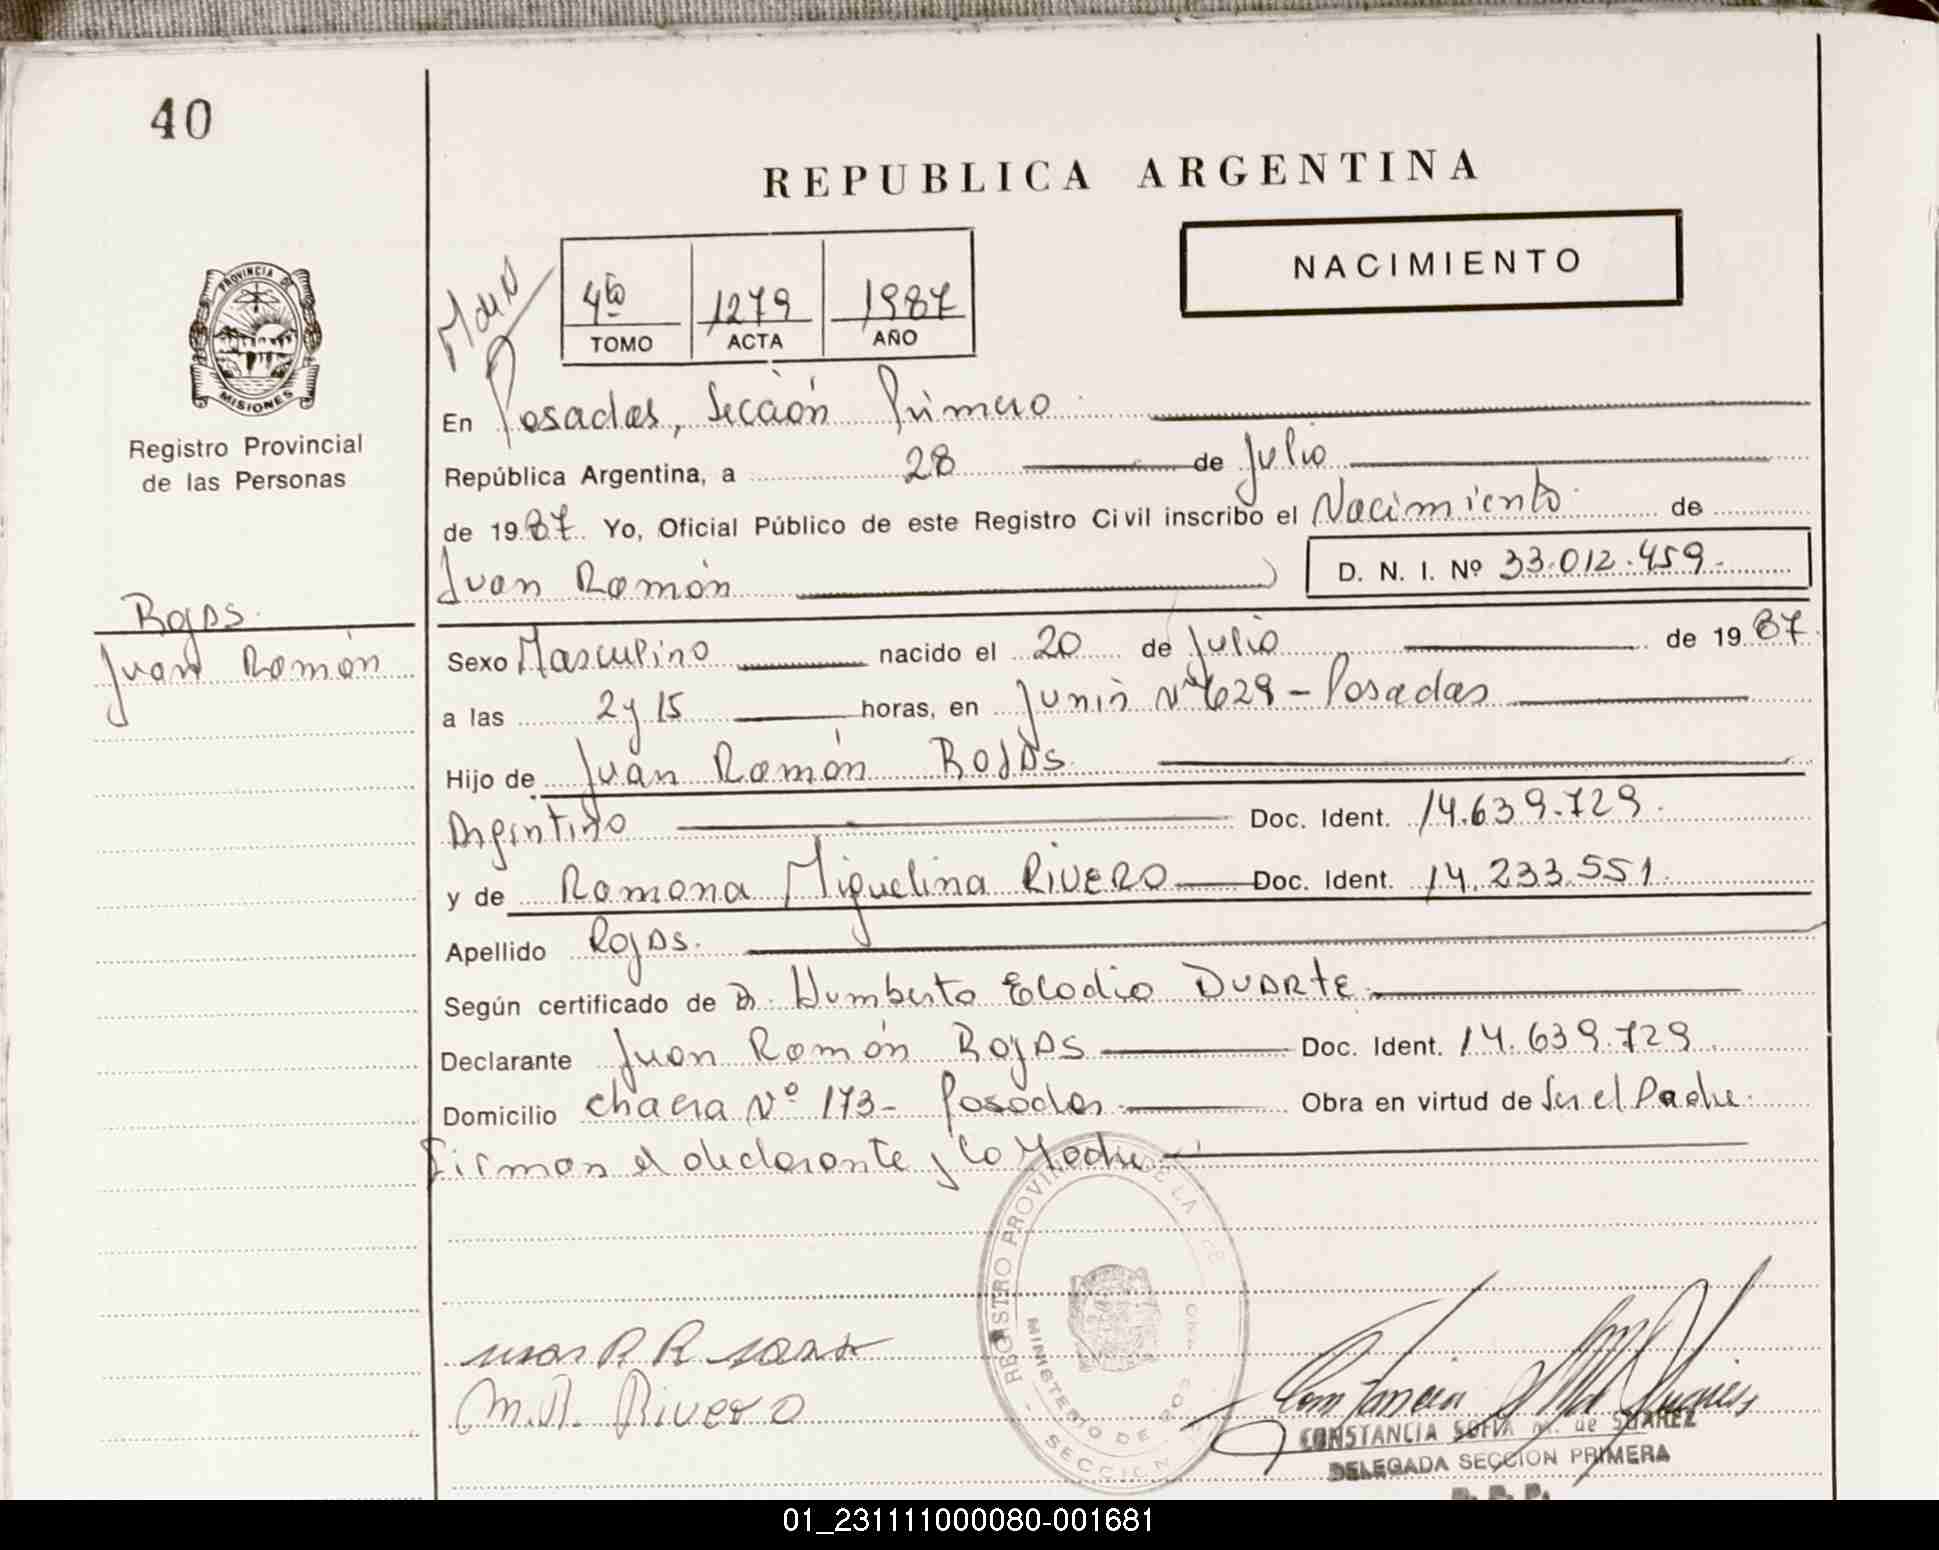 40
REPUBLICA ARGENTINA
NACIMIENTO
4to 1279 1987
TOMO ACTA AÑO
PROVINCIA DE
MISIONES
Registro Provincial
de las Personas
Rojas.
Juan Ramón
En Posadas, Sección Primera
República Argentina, a 28 de Julio
de 1987. Yo, Oficial Público de este Registro Civil inscribo el Nacimiento de
Juan Ramón D. N. I. Nº 33.012.459.-
Sexo Masculino nacido el 20 de Julio de 1987
a las 2 y 15 horas, en Junín Nº 629 - Posadas
Hijo de Juan Ramón ROJAS
Argentino Doc. Ident. 14.639.729.
y de Ramona Miguelina RIVERO Doc. Ident. 14.233.551.
Apellido Rojas.
Según certificado de D. Humberto Elodio DUARTE.
Declarante Juan Ramón ROJAS Doc. Ident. 14.639.729.
Domicilio Chacra Nº 173 - Posadas. Obra en virtud de Ser el Padre.
Firman el declarante y la Madre
REGISTRO PROVINCIAL DE LAS
MINISTERIO DE
SECCION
M.R. Rivero
CONSTANCIA SOFIA M. de SUAREZ
DELEGADA SECCION PRIMERA
R. P. P.
01_231111000080-001681